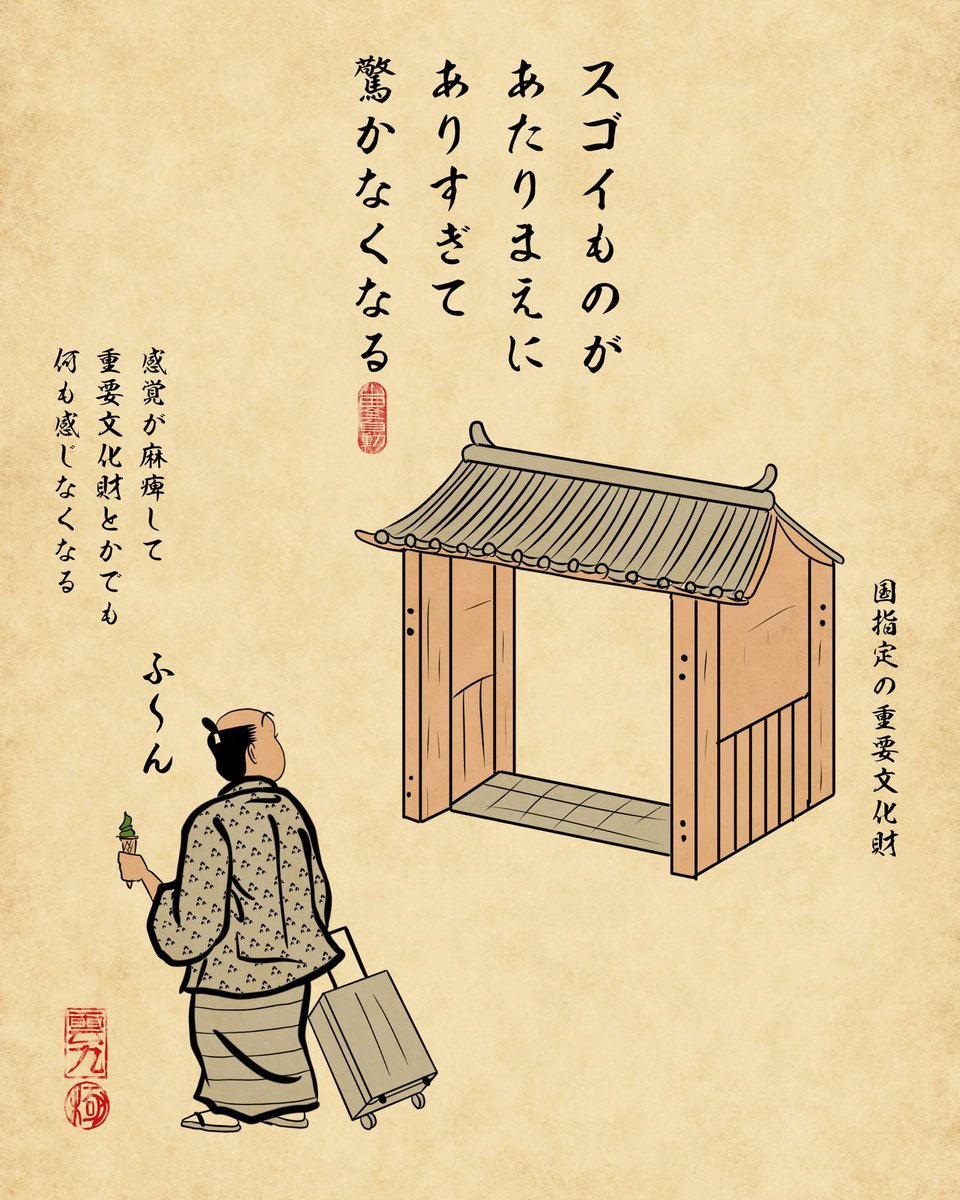 スゴイものが
あたりまえに
ありすぎて
驚かなくなる
国指定の重要文化財
感覚が麻痺して
重要文化財とかでも
何も感じなくなる
ふ〜ん